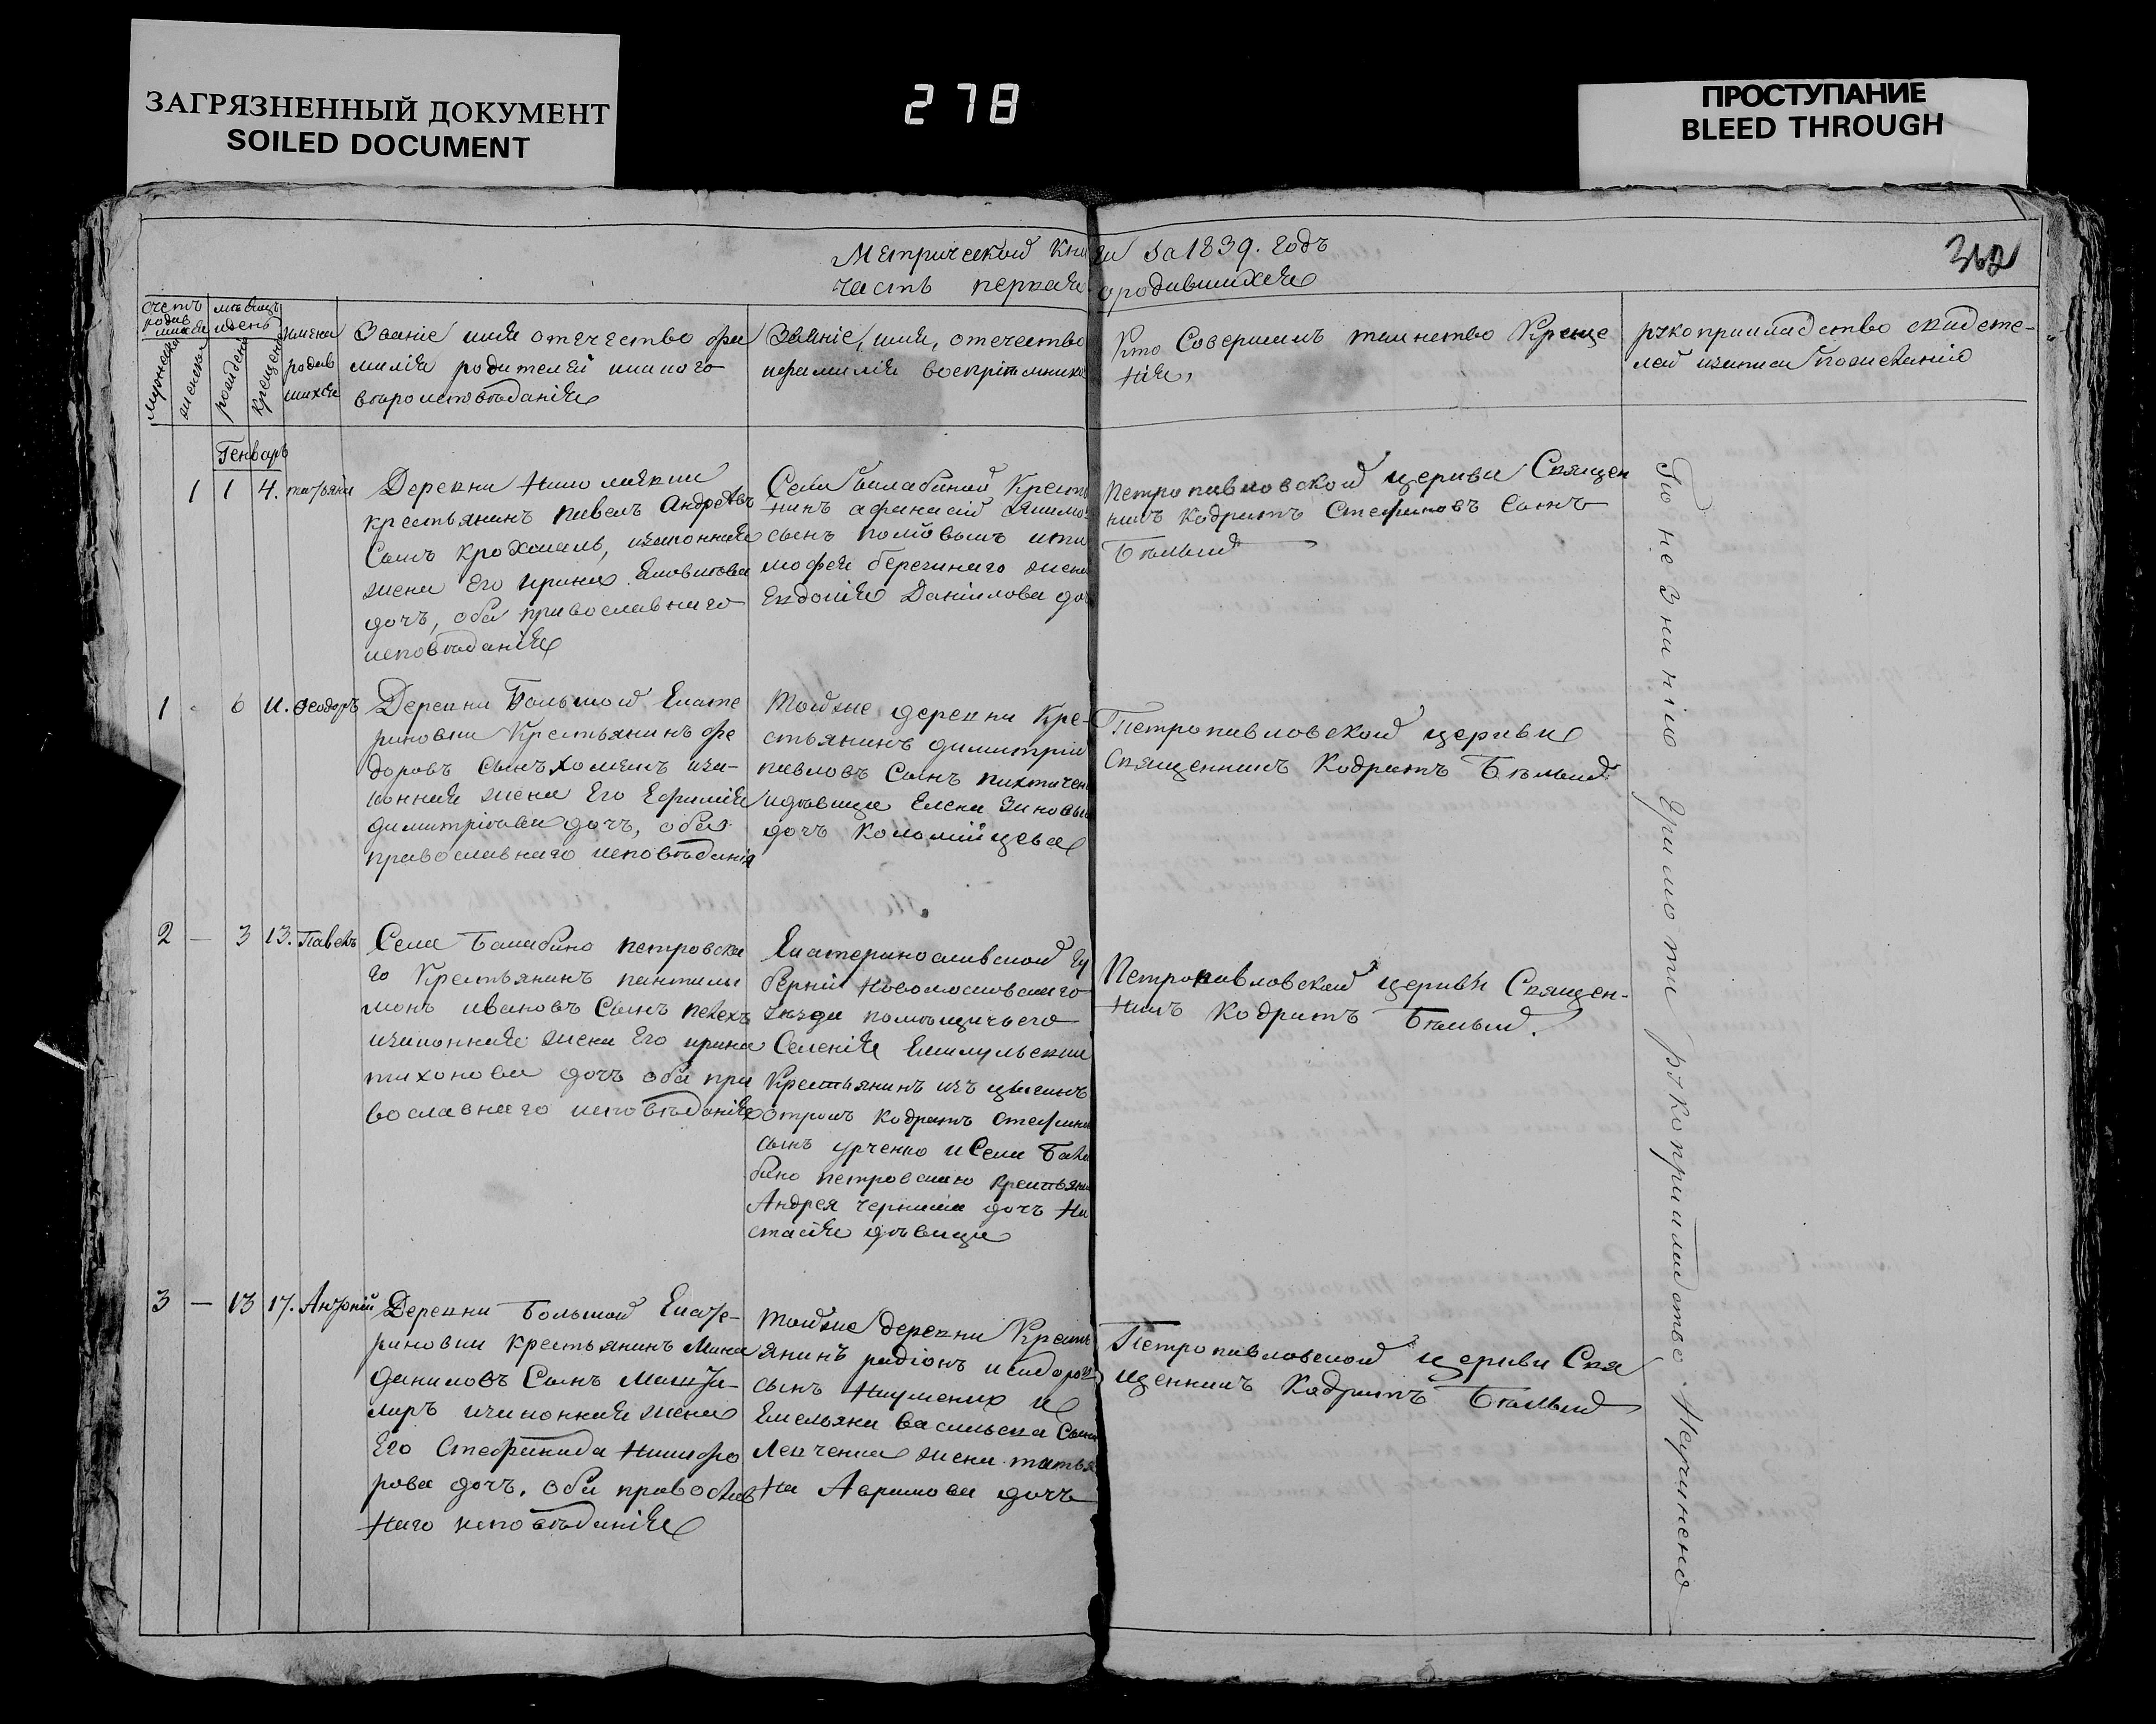 ЗАГРЯЗНЕННЫЙ ДОКУМЕНТ
SOILED DOCUMENT
278
ПРОСТУПАНИЕ
BLEED THROUGH
Метрической Книги за 1839. годъ
часть первая о родившихся
счетъ родившихся
мужеска
женска
мѣсяцъ и день
рожденія
крещенія
имена родившихся
Званіе имя отечество фа
милія родителей и какого
вѣроисповѣданія
Званіе, имя, отечество
и фамилія воспріемников
Кто Совершалъ таинство Креще
нія,
рукоприкладство свидете-
лей записи по желанію
Генварь
1 1 4. татьяна
Деревни Николаевки
крестьянинъ павелъ Андреевъ
Сынъ Крохмаль, изаконная
жена Его ирина Яковлева
дочъ, оба православнаго
исповѣданія
Села балабиной Крестья
нинъ афанасій Якимов
сынъ полтовецъ и ти
мофея бережнаго жена
Евдокія Даніилова дочъ
Петропавловской церкви Священ
никъ Кодратъ Стефановъ Сынъ
Бѣлый
1 - 6 11. Феодоръ
Деревни Большой Екате
риновки Крестьянинъ фе
доровъ сынъ хоменъ иза-
конная жена Его Ефимия
димитріева дочъ, оба
православнаго исповѣданія
Тойже деревни Кре-
стьянинъ димитрій
павловъ Сынъ
идѣвица Елена Зиновьева
дочъ Коломійцева
Петропавловской церкви
Священникъ Кодратъ Бѣлый
2 - 3 13. Павелъ
Села Балабино петровска
го Крестьянинъ пантелей
монъ ивановъ Сынъ пелехъ
изаконная жена Его ирина
тихонова дочъ оба пра
вославнаго исповѣданія
Екатеринославской гу
берніи Новомосковскаго
уѣзда помѣщичьего
Селенія
Крестьянинъ изъ
Кодратъ Стефанов
сынъ урченко и Села Бала
бино петровскаго крестьяни
Андрея Черника дочъ На
стасія дѣвица
Петропавловской церкви Священ-
никъ Кодратъ Бѣлый.
3 - 13 17. Антоній
Деревни Большой Екате-
риновки крестьянинъ Мина
даниловъ Сынъ
изаконная жена
Его Стефанида Никифо
рова дочъ, оба православ
наго исповѣданія
Тойже деревни Кресть
янинъ радіонъ исидоров
сынъ Науменко и
Емельяна васильева Сына
Левченка жена татья
на Акимова дочъ
Петропавловской церкви Свя
щенникъ Кодратъ Бѣлый
По незнанію Грамоты рукоприкладство Неучинено